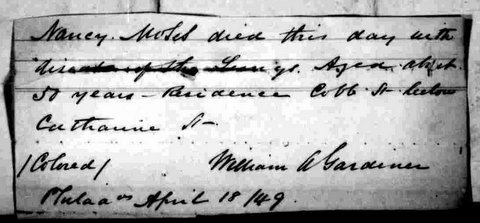 Nancy Moses died this day with
disease of the Lungs. Aged about
50 years - Residence Cobb St below
Catharine St
/Colored/ William A Gardiner
Philada April 18/49.